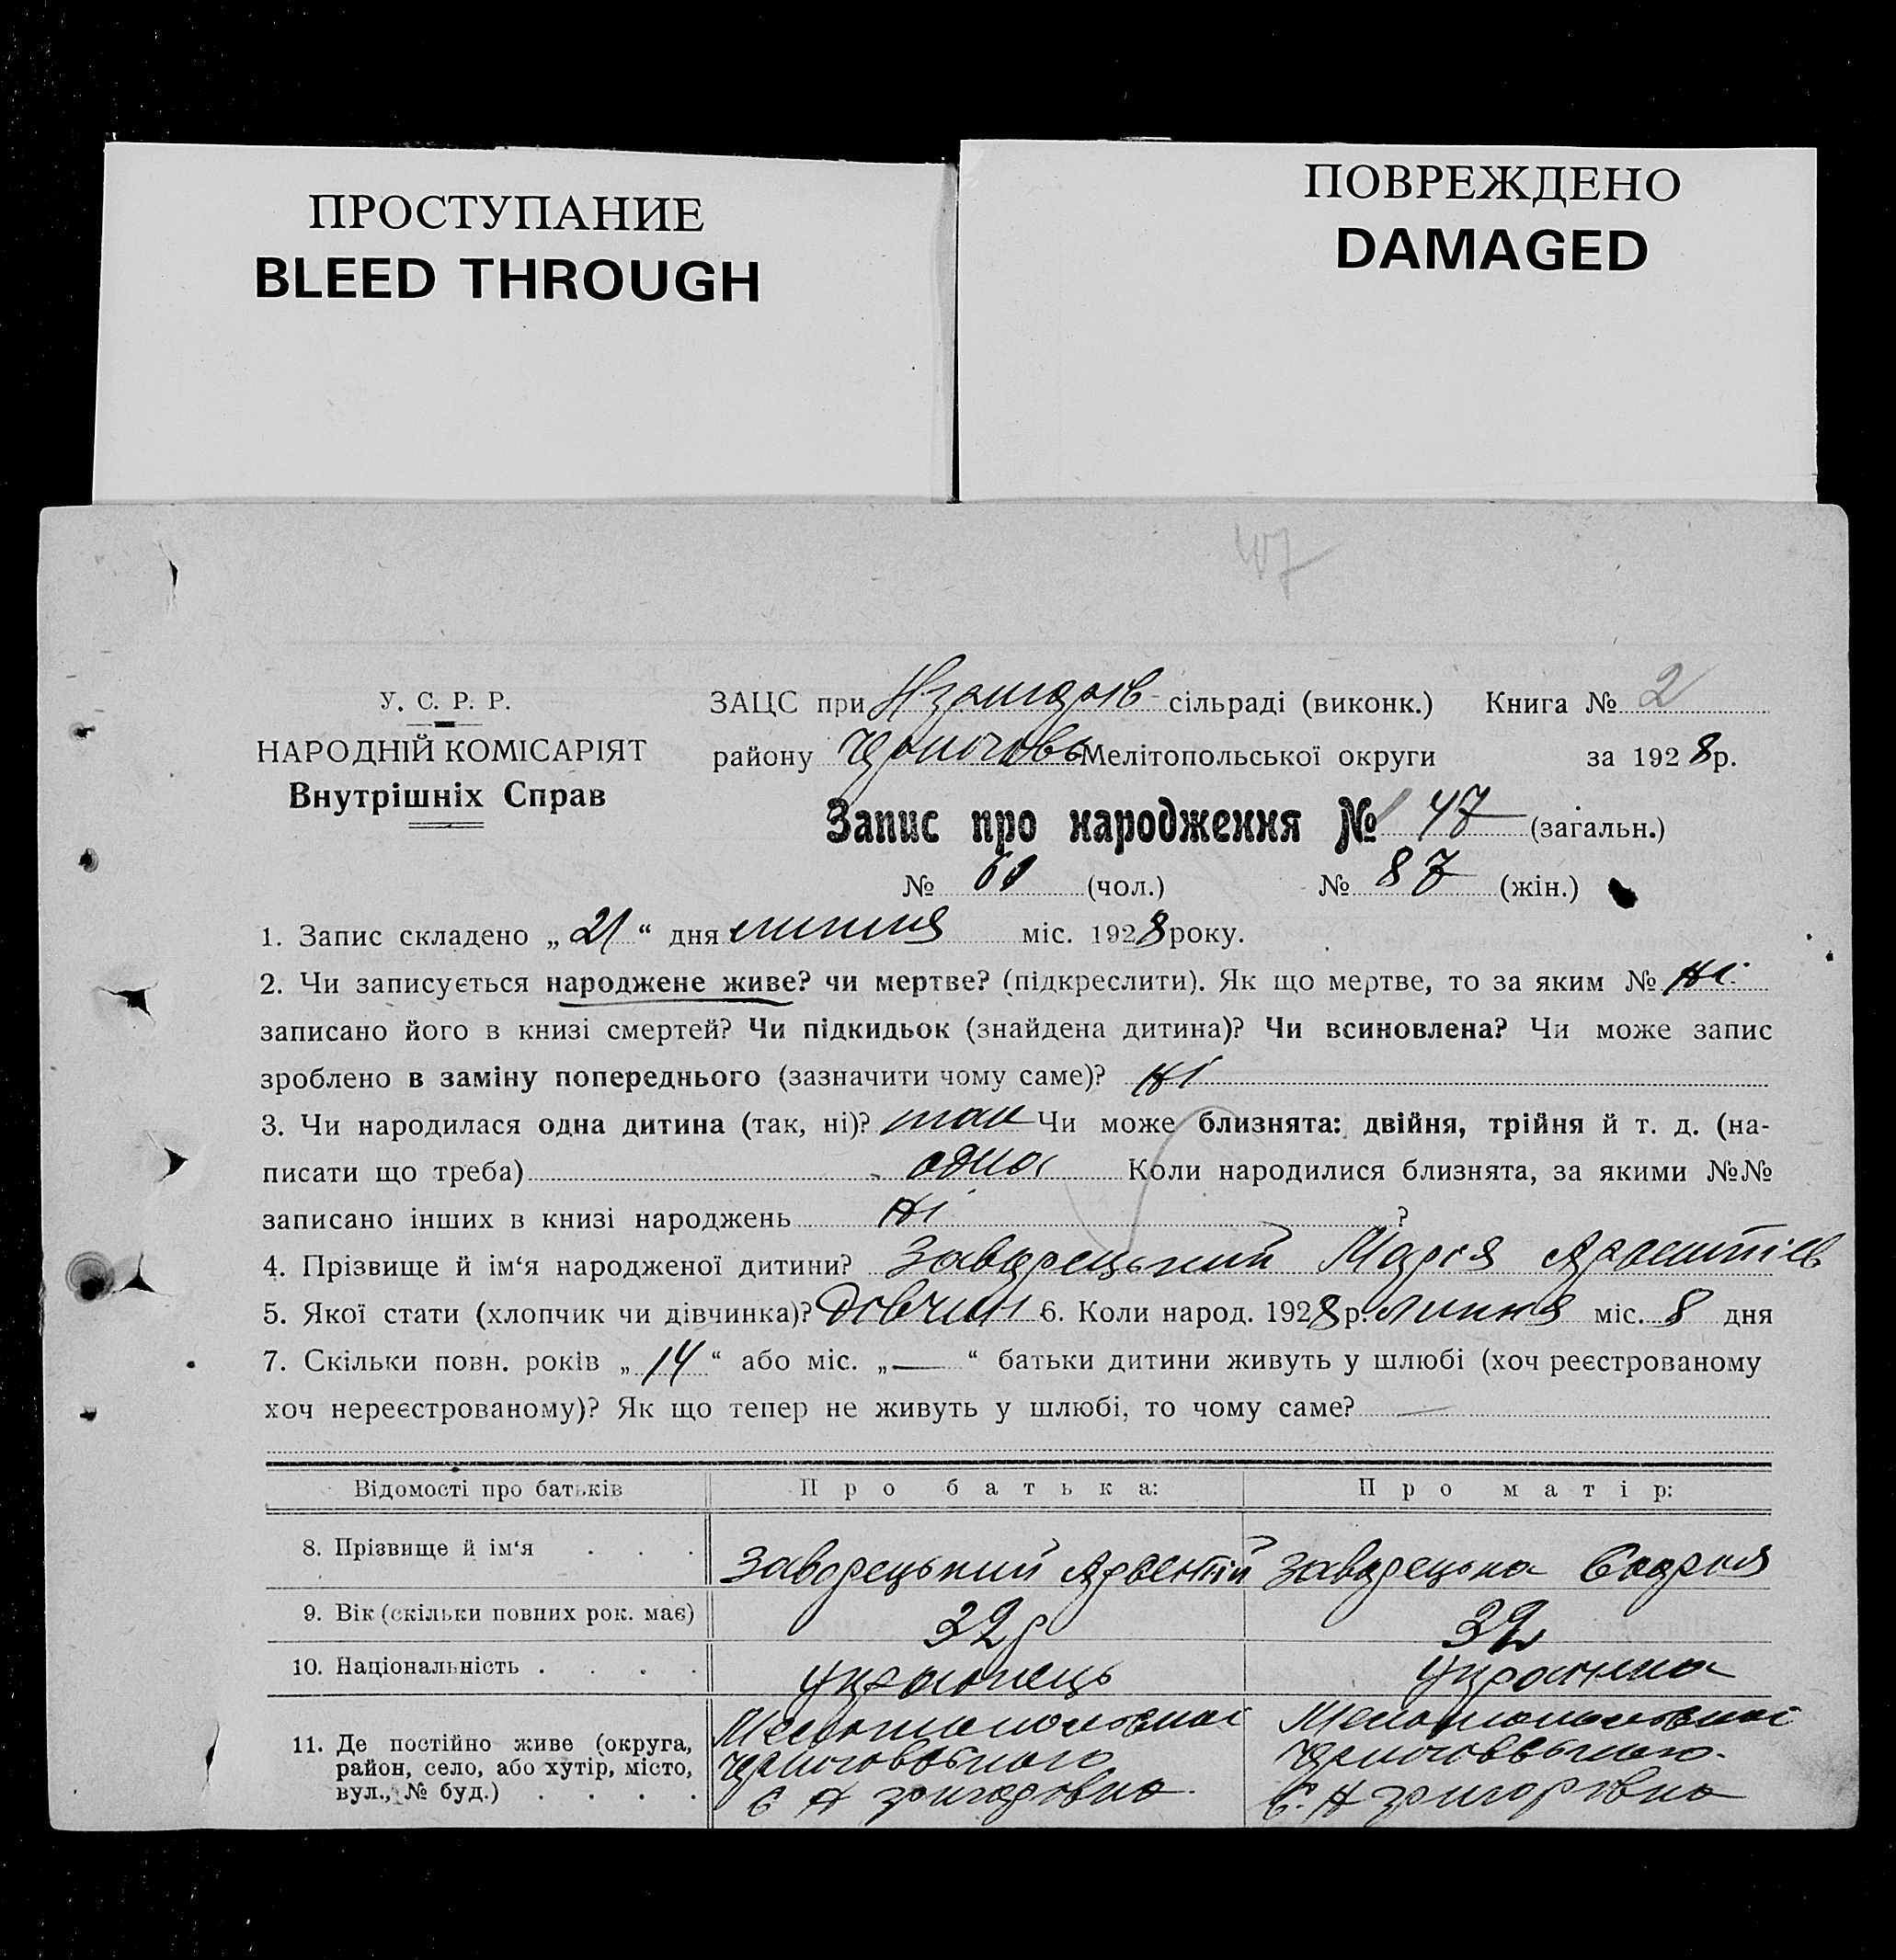 ПРОСТУПАНИЕ
BLEED THROUGH
ПОВРЕЖДЕНО
DAMAGED
У. С. Р. Р.
НАРОДНІЙ КОМІСАРІЯТ
Внутрішніх Справ
ЗАЦС при сільраді (виконк.) Книга № 2
району Мелітопольської округи за 1928 р.
Запис про народження № 47 (загальн.)
№ (чол.) № 87 (жін.)
1. Запис складено „ 21 “ дня липня міс. 1928 року.
2. Чи записується народжене живе? чи мертве? (підкреслити). Як що мертве, то за яким № ні
записано його в книзі смертей? Чи підкидьок (знайдена дитина)? Чи всиновлена? Чи може запис
зроблено в заміну попереднього (зазначити чому саме)? ні
3. Чи народилася одна дитина (так, ні)? так Чи може близнята: двійня, трійня й т. д. (на-
писати що треба) одна Коли народилися близнята, за якими №№
записано інших в книзі народжень ні ?
4. Прізвище й ім‘я народженої дитини? Заварецький Марія
5. Якої стати (хлопчик чи дівчинка)? Дівчин 6. Коли народ. 1928 р. липня міс. 8 дня
7. Скільки повн. років „ 14 “ або міс. „ — “ батьки дитини живуть у шлюбі (хоч реєстрованому
хоч нереєстрованому)? Як що тепер не живуть у шлюбі, то чому саме? —
Відомості про батьків Про батька: Про матір:
8. Прізвище й ім‘я Заварецький Заварецька
9. Вік (скільки повних рок. має) 32 р 32
10. Національність Українець Українка
11. Де постійно живе (округа,
район, село, або хутір, місто,
вул., № буд.)
Мелітопольської Мелітопольської
с. Н Григорівка с. Н Григорівка